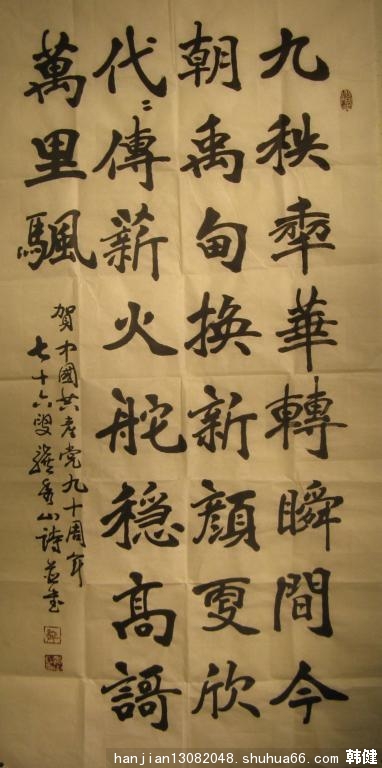 九秩秊華轉瞬間今
朝禹甸换新顔更欣
代〻傳薪火舵穩高謌
萬里颿
賀中國共產党九十周年
七十六叟山詩并书
hanjian13082048.shuhua66.com 韩健